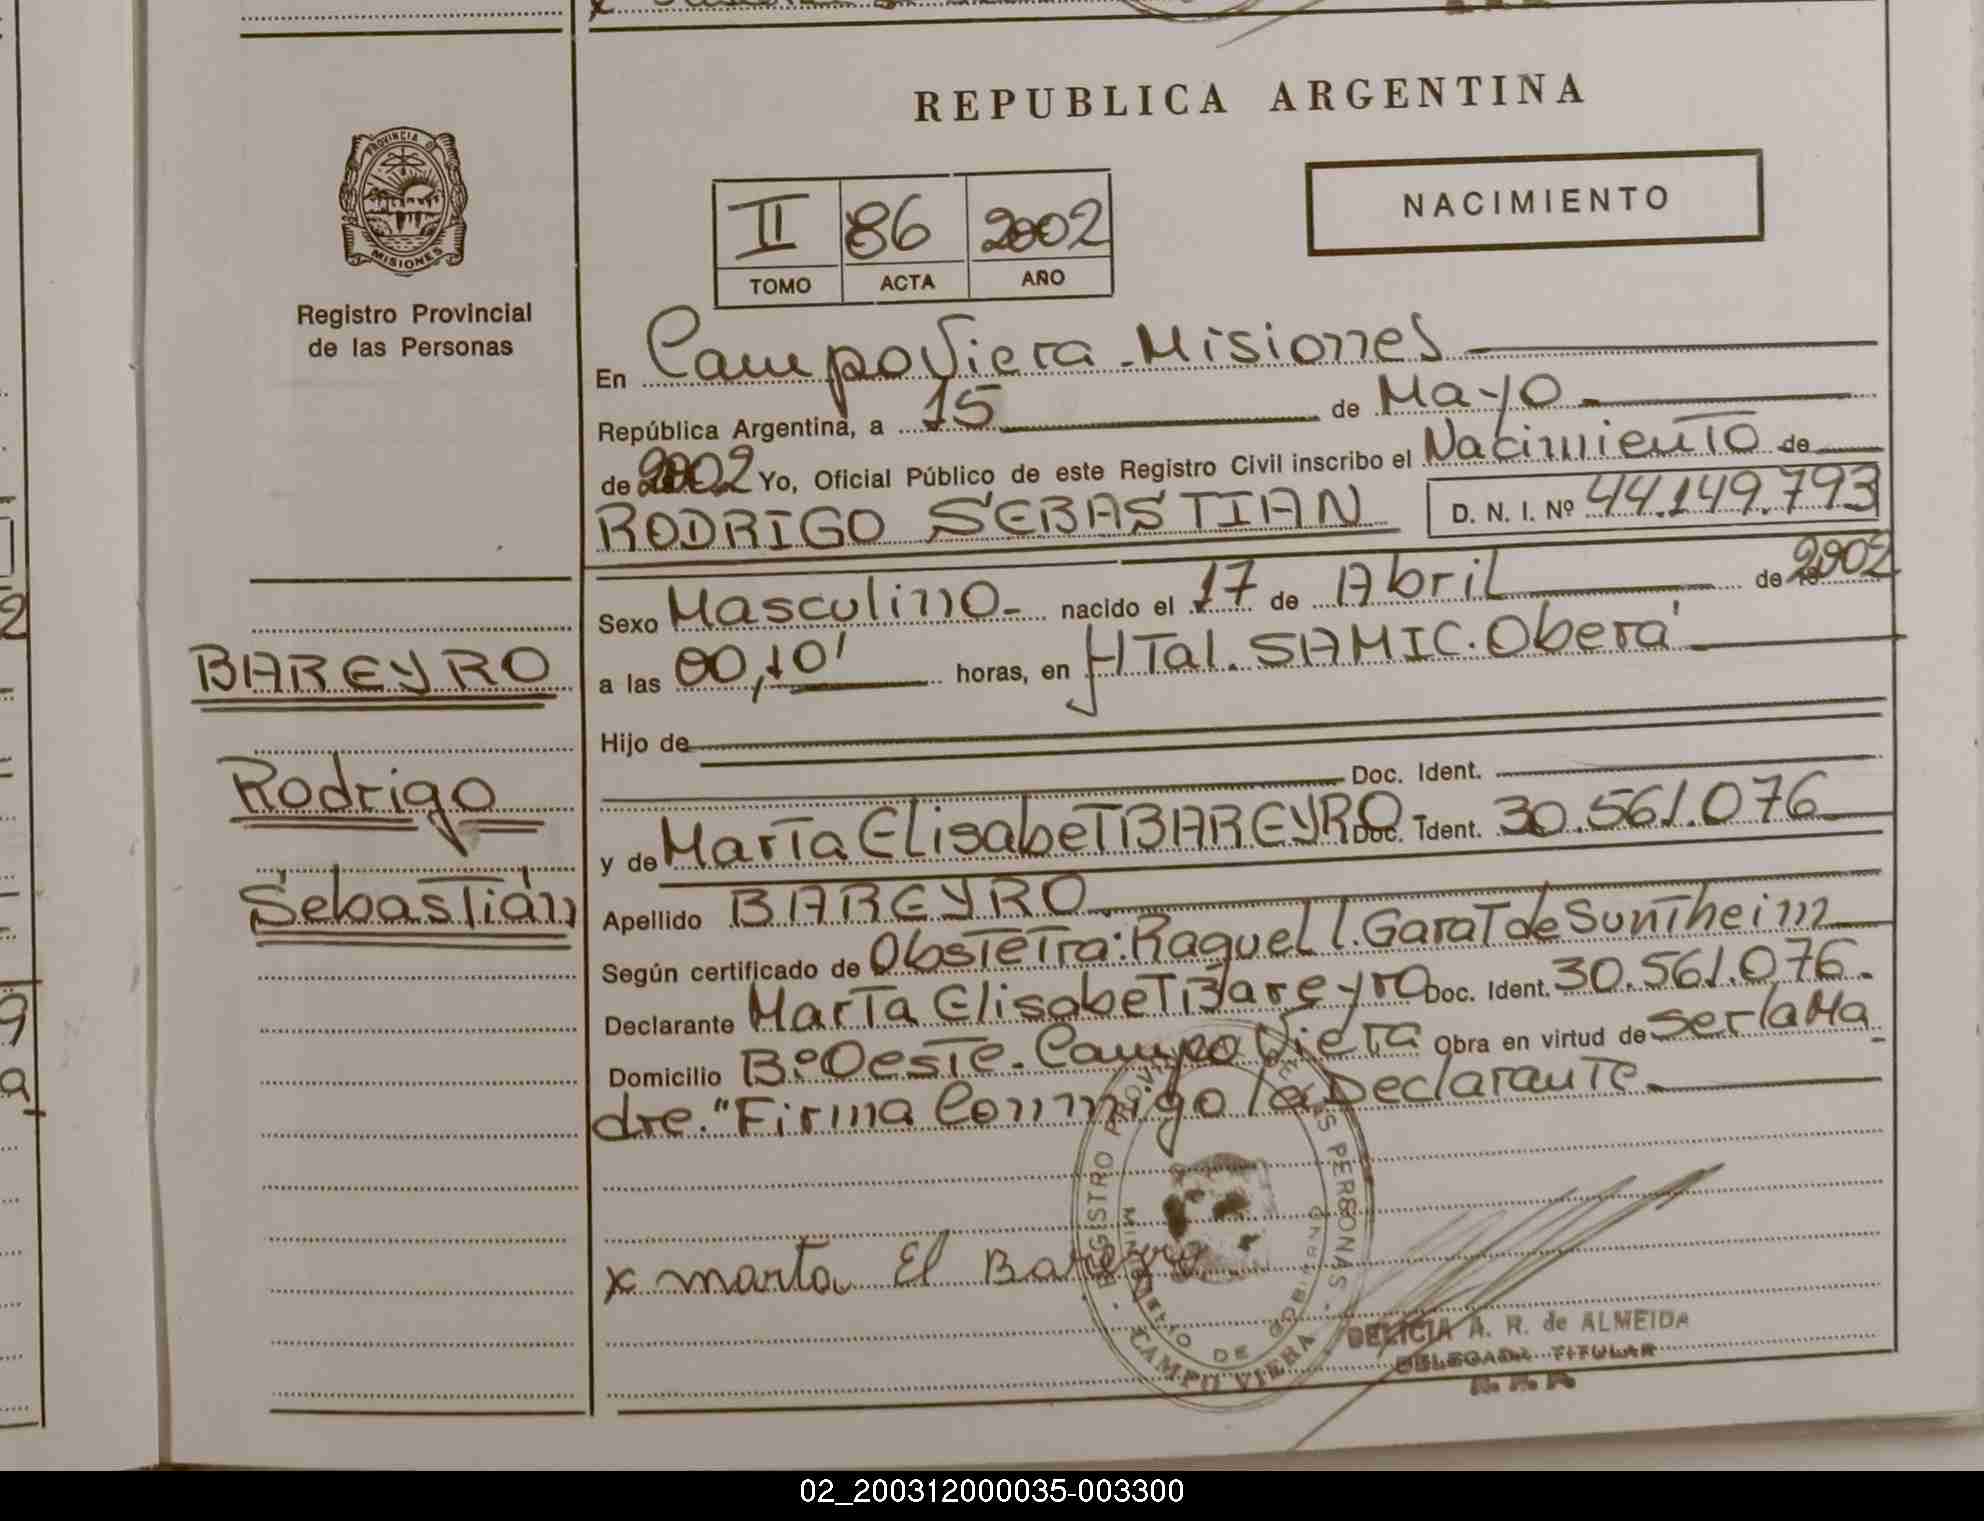 REPUBLICA ARGENTINA
PROVINCIA DE
MISIONES
Registro Provincial
de las Personas
NACIMIENTO
II 86 2002
TOMO ACTA AÑO
En Campo Viera - Misiones
República Argentina, a 15 de Mayo
de 2002 Yo, Oficial Público de este Registro Civil inscribo el Nacimiento de
RODRIGO SEBASTIAN D. N. I. Nº 44.149.793
Sexo Masculino - nacido el 17 de Abril de 2002
a las 00,10' horas, en HTal. SAMIC. Oberá
Hijo de
Doc. Ident.
y de Marta Elisabet BAREYRO Doc. Ident. 30.561.076
Apellido BAREYRO
Según certificado de Obstetra: Raquel l. Garat de Suntheim
Declarante Marta Elisabet Bareyro Doc. Ident. 30.561.076.
Domicilio Bº Oeste - Campo Viera Obra en virtud de ser la Ma
dre. "Firma Conmigo la Declarante
BAREYRO
Rodrigo
Sebastián
x marta El Bareyro
REGISTRO PROVINCIAL DE LAS PERSONAS
MINISTERIO DE GOBIERNO
CAMPO VIERA
DELICIA A. R. de ALMEIDA
DELEGADA TITULAR
02_200312000035-003300